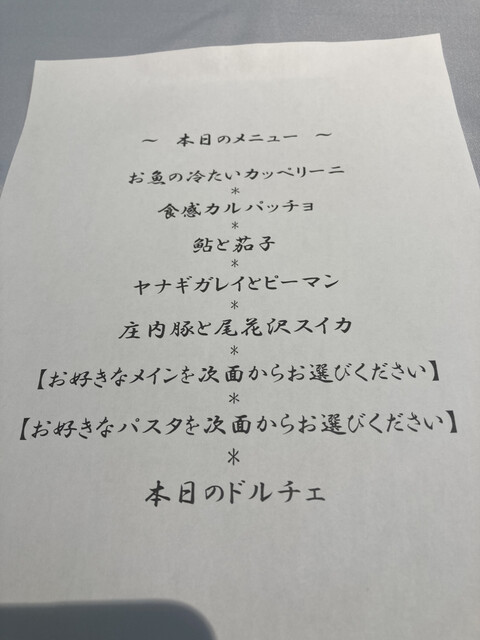 ～ 本日のメニュー ～
お魚の冷たいカッペリーニ
*
食感カルパッチョ
*
鮎と茄子
*
ヤナギガレイとピーマン
*
庄内豚と尾花沢スイカ
*
【お好きなメインを次面からお選びください】
*
【お好きなパスタを次面からお選びください】
*
本日のドルチェ